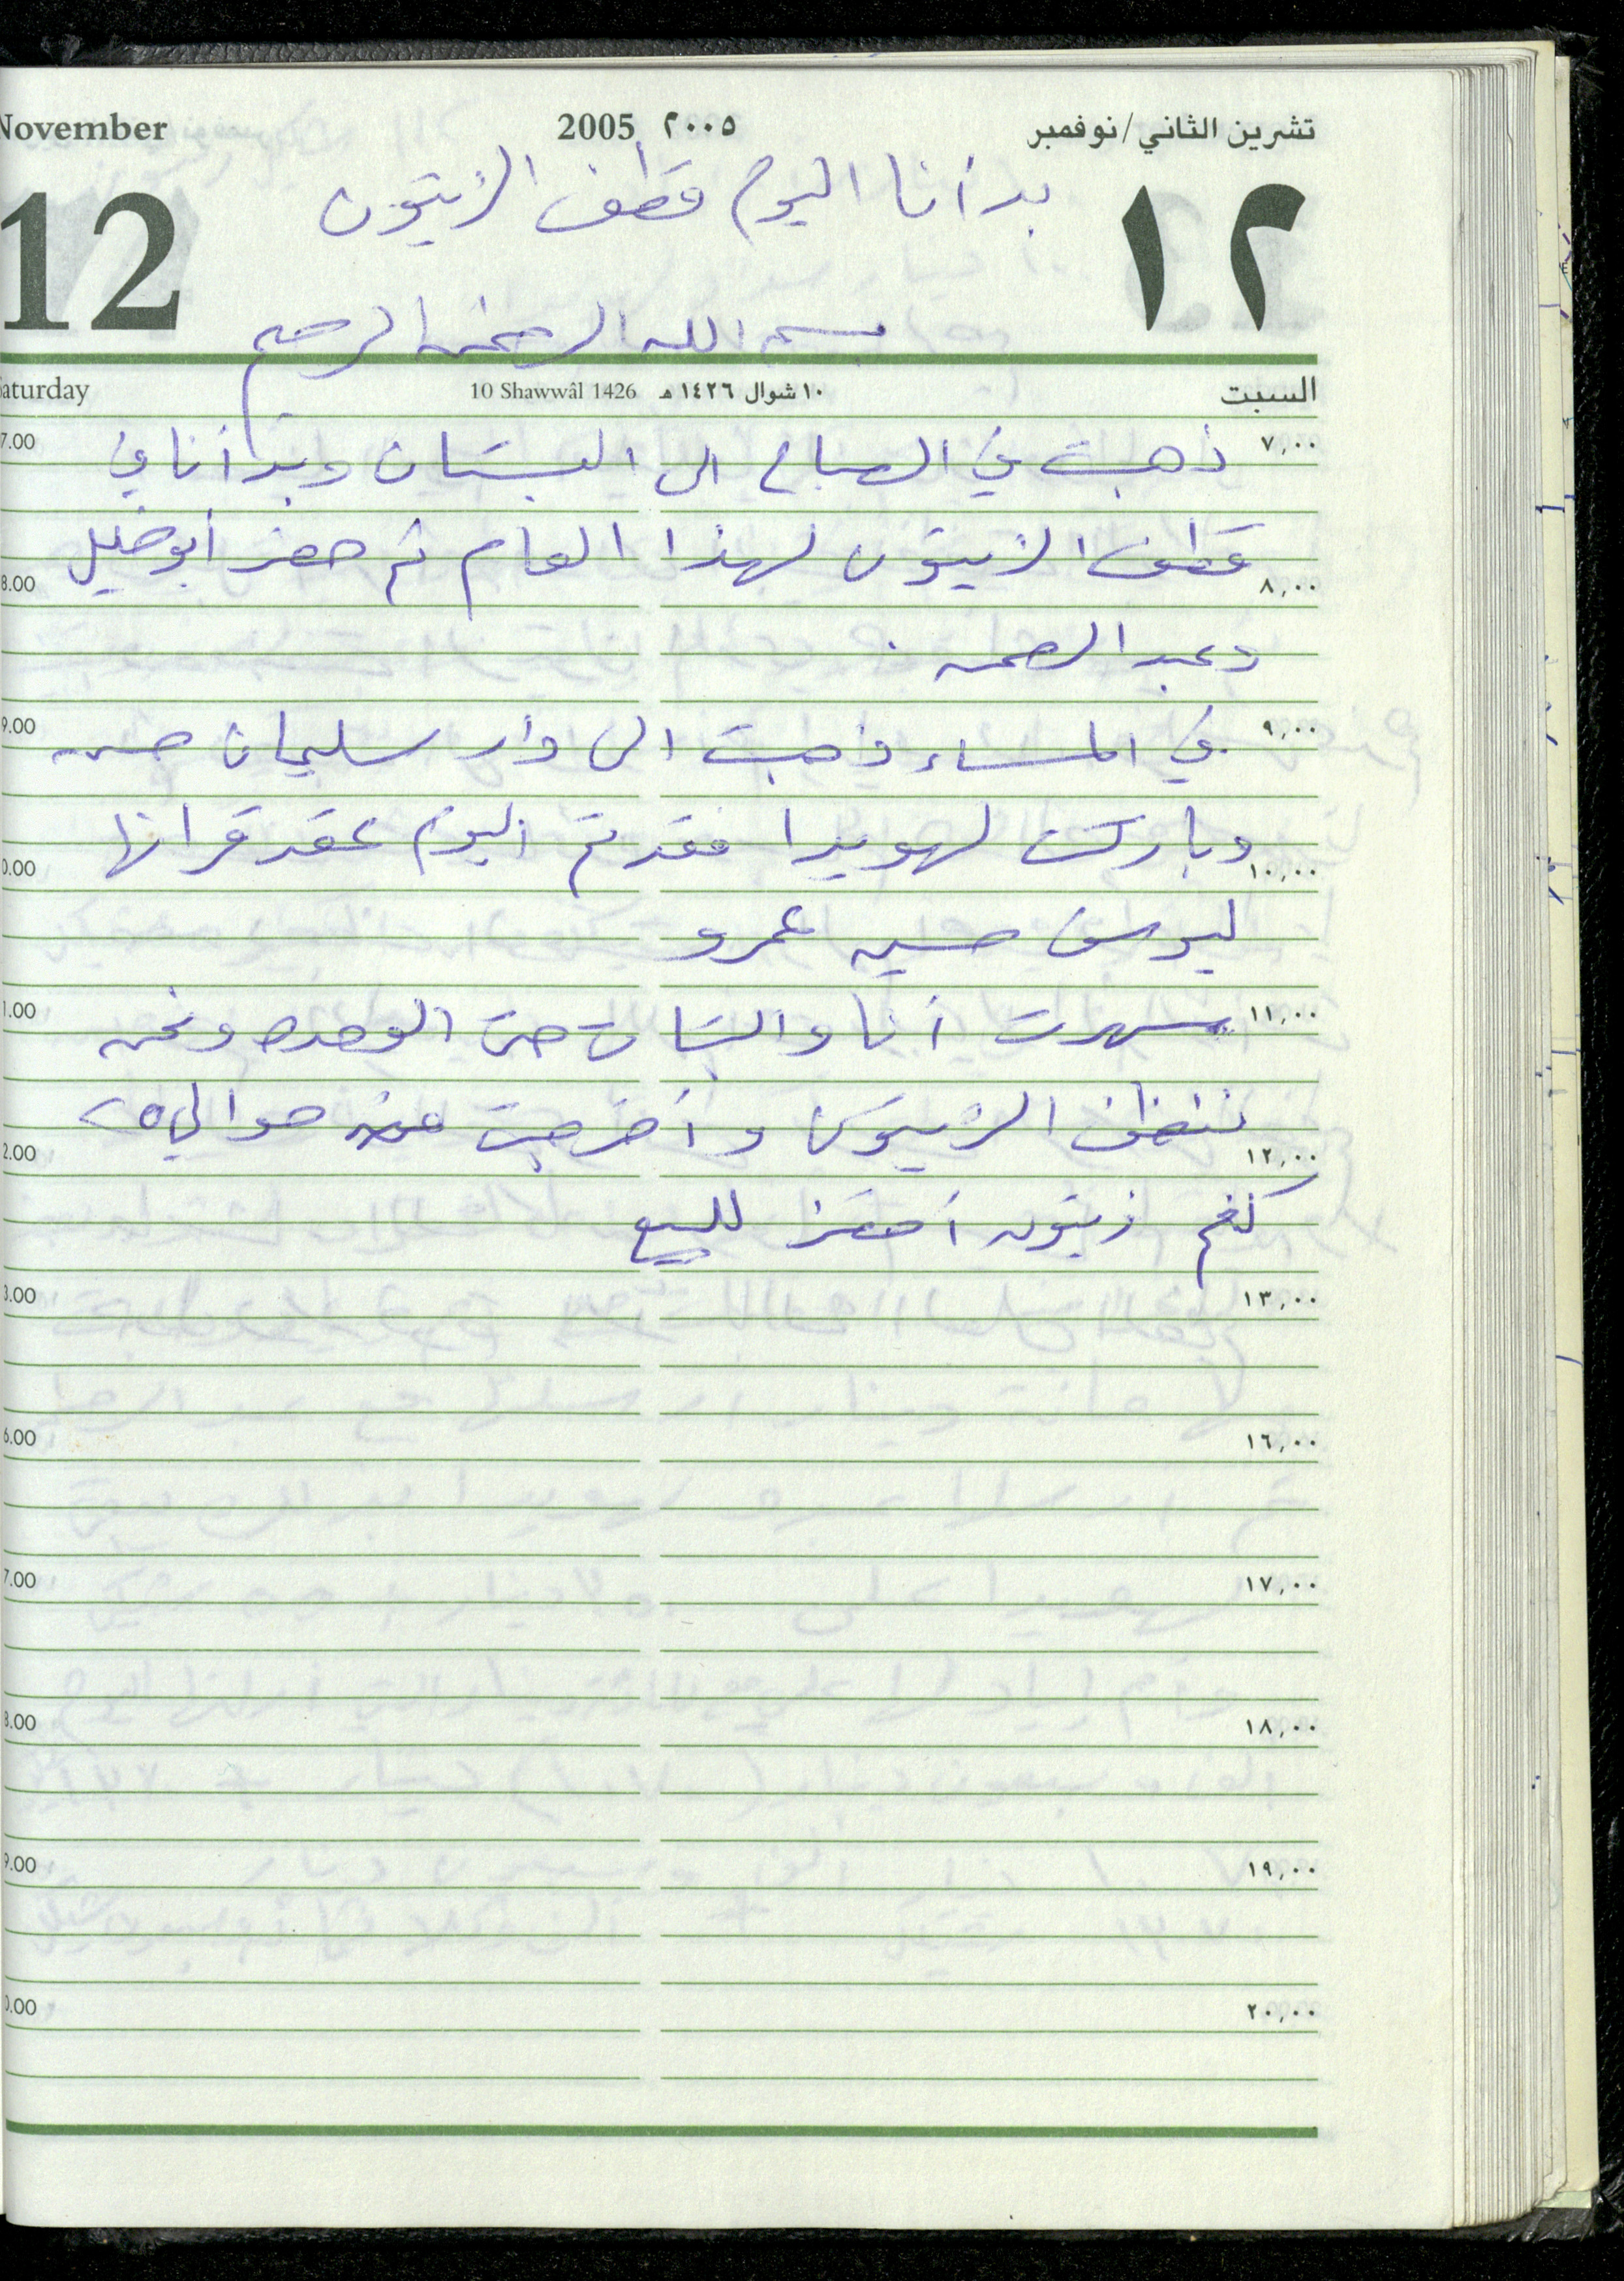 November 2005 ٢٠٠٥ تشرين الثاني/نوفمبر
12 ١٢
بدأنا اليوم قطف الزيتون
بسم الله الرحمن الرحيم
Saturday 10 Shawwâl 1426 ١٠ شوال ١٤٢٦ هـ السبت
7.00 ٧,٠٠
ذهبت في الصباح الى البستان وبدأنا في
قطف الزيتون لهذا العام ثم حضر أبو خليل
8.00 ٨,٠٠
وعبد الرحمن .
9.00 ٩,٠٠
في المساء ذهبت الى دار سليمان حسن
وباركت لهويدا فقد تم اليوم عقد قرانها
0.00 ١٠,٠٠
ليوسف حسين عمرو
1.00 ١١,٠٠
سهرت أنا والبنات حتى الوحده ونحن
ننظف الزيتون وأخرجت منه حوالي ٢٥
2.00 ١٢,٠٠
كغم زيتون أخضر للبيع
3.00 ١٣,٠٠
6.00 ١٦,٠٠
7.00 ١٧,٠٠
8.00 ١٨,٠٠
9.00 ١٩,٠٠
0.00 ٢٠,٠٠